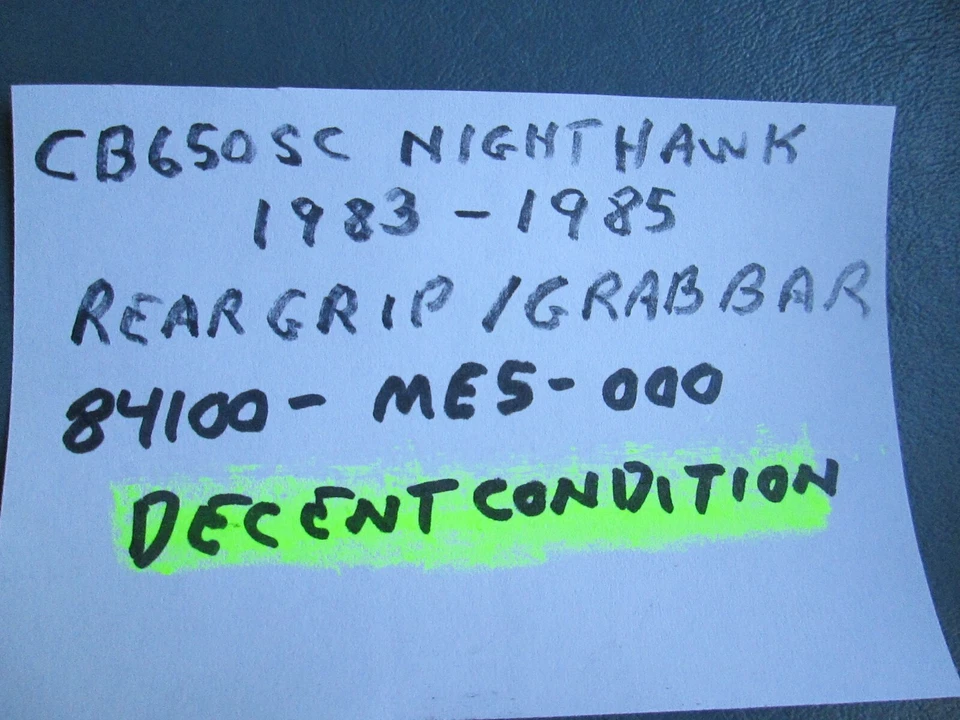 CB650SC NIGHTHAWK
1983 - 1985
REAR GRIP / GRAB BAR
84100 - ME5 - 000
DECENT CONDITION